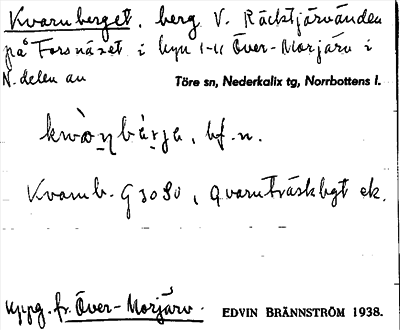 Kvarnberget, berg V. Räcktjärvänden
på Forsnäset i hyn 1-11 Över-Morjärv i
N. delen av Töre sn, Nederkalix tg, Norrbottens l.
kwà̀ṇbárja, bf. n.
Kvarnb. G 3080, Qvarnträskbgt ek.
Uppg. fr. Över-Morjärv. EDVIN BRÄNNSTRÖM 1938.